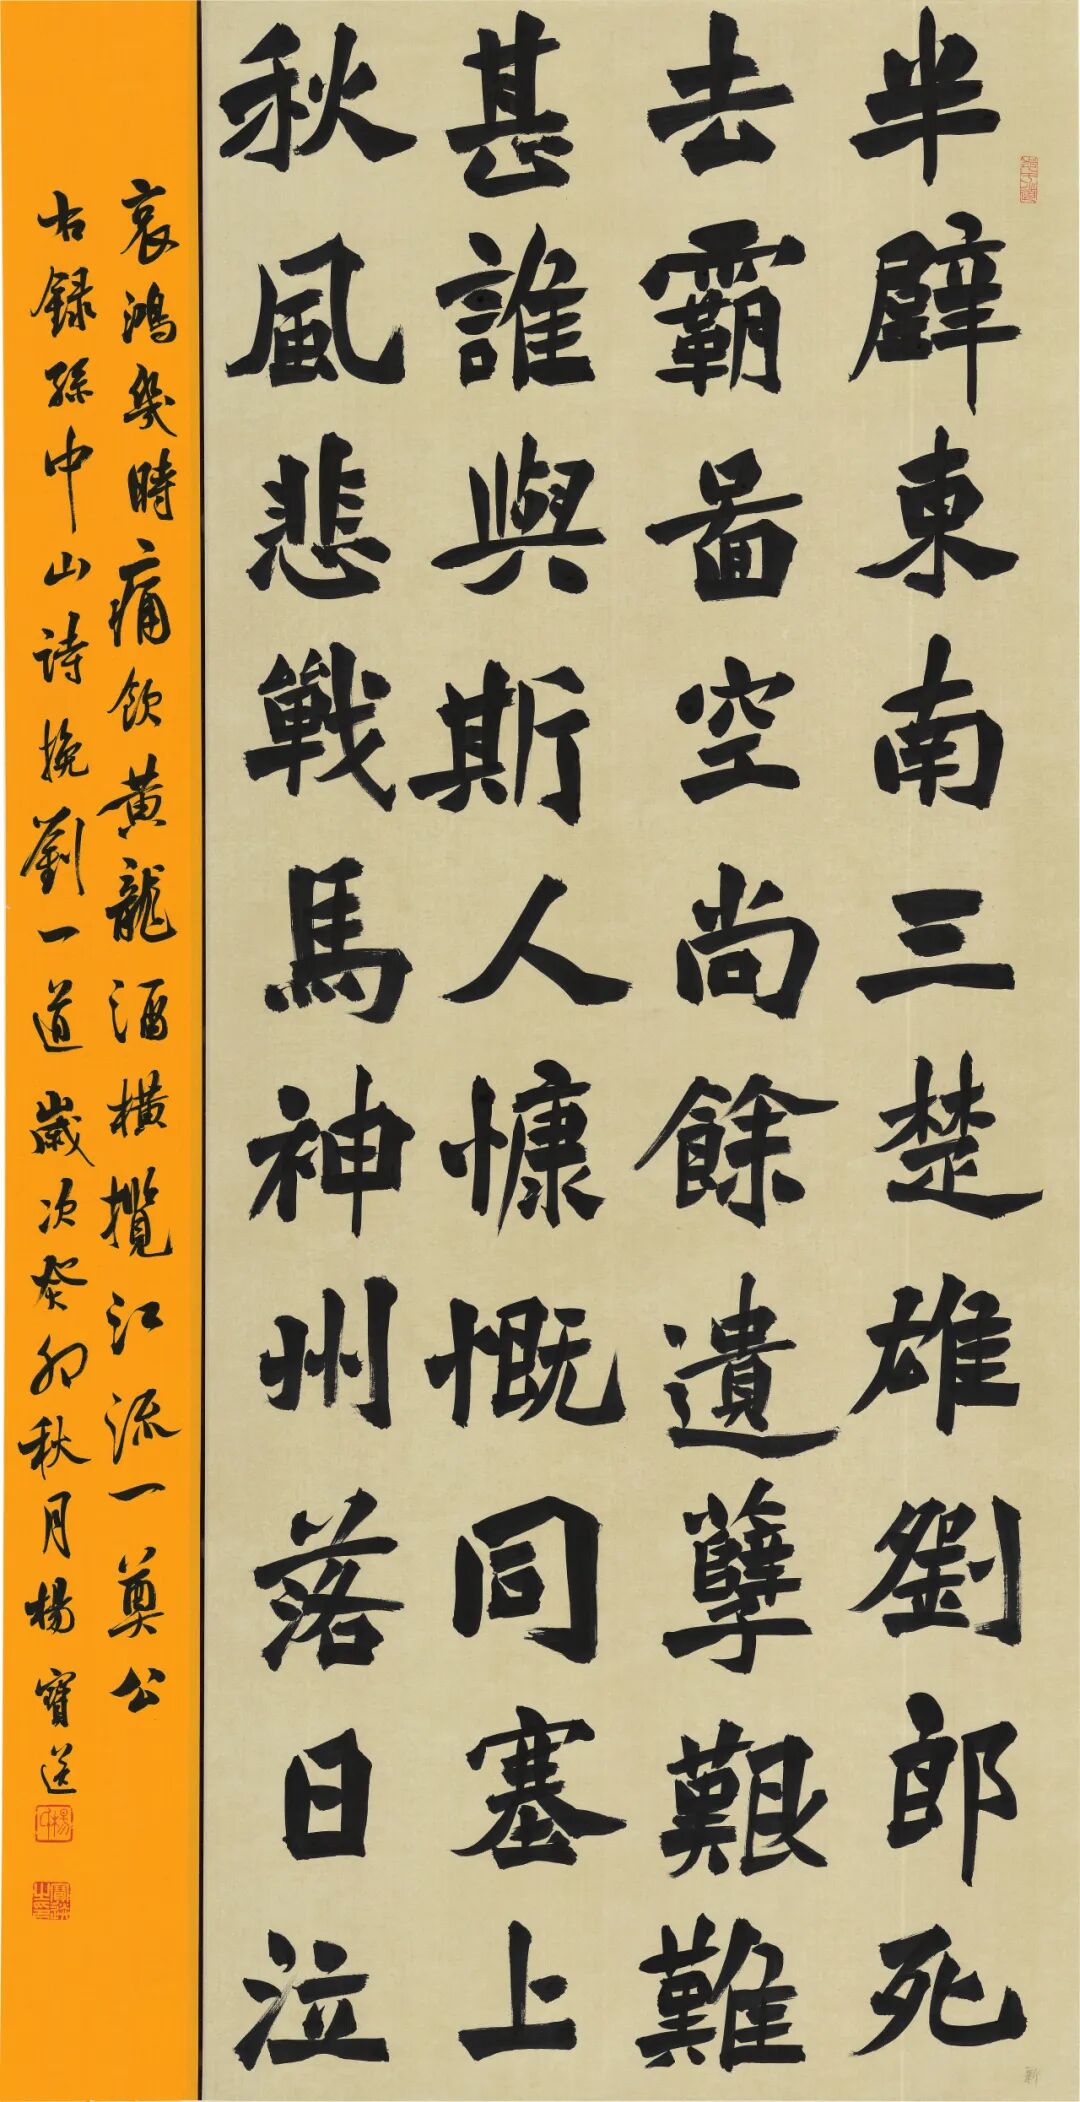 半壁東南三楚雄劉郎死
去霸啚空尚餘遺孽艱難
甚誰與斯人慷慨同塞上
秋風悲戰馬神州落日泣
哀鴻幾時痛飲黃龍酒橫攬江流一奠公
右録孫中山詩挽劉一道歲次癸卯秋月楊寶送